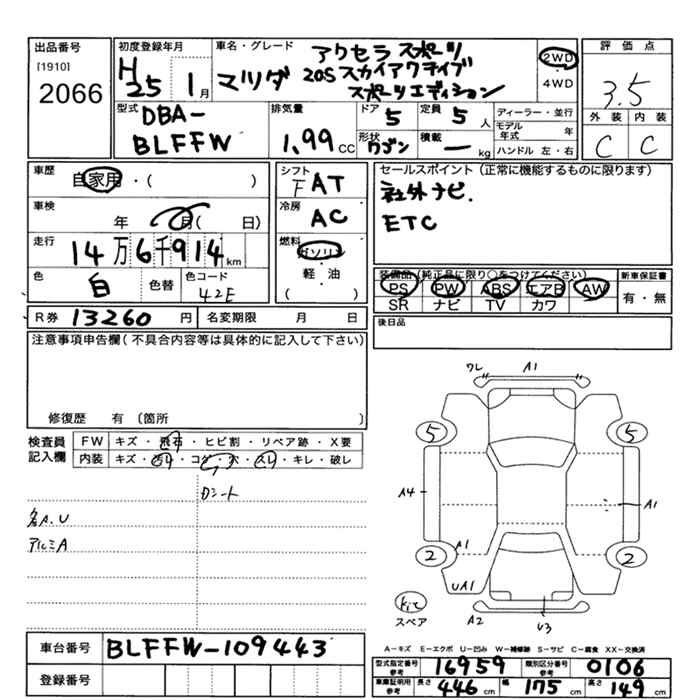 出品番号
[1910]
2066
初度登録年月
H25 1月
車名・グレード
マツダ
アクセラ スポーツ
20S スカイアクティブ
スポーツエディション
2WD
・
4WD
評価点
3.5
外装 内装
C C
型式
DBA-
BLFFW
排気量
1.99 CC
ドア
5
定員
5 人
形状
ワゴン
積載
ー kg
ディーラー・並行
モデル年式 年
ハンドル 左・右
車歴
自家用・( )
車検
年 月( 日)
走行
14万6千914km
色
白
色替
色コード
42E
シフト
FAT
冷房
AC
燃料
ガソリン
・
軽・油
( )
セールスポイント(正常に機能するものに限ります)
社外ナビ.
ETC
装備品(純正品に限り○をつけてください)
PS PW ABS エアB AW
SR ナビ TV カワ
新車保証書
有・無
R券 13260 円
名変期限 月 日
後日品
注意事項申告欄(不具合内容等は具体的に記入して下さい)
修復歴 有(箇所 )
検査員
記入欄
FW キズ・飛石・ヒビ割・リペア跡・X要
内装 キズ・汚れ・コゲ・穴・スレ・キレ・破レ
ロシート
各A.U
アルミA
ワレ A1
5 5
A4 A1
2 2
A1
UA1
A2 U3
スペア
A-キズ E-エクボ U-凹み W-補修跡 S-サビ C-腐食 XX-交換済
車台番号 BLFFW-109443
登録番号
型式指定番号 参考 16959 類別区分番号 参考 0106
車庫証明用 参考 長さ 446 cm 幅 175 cm 高さ 149 cm